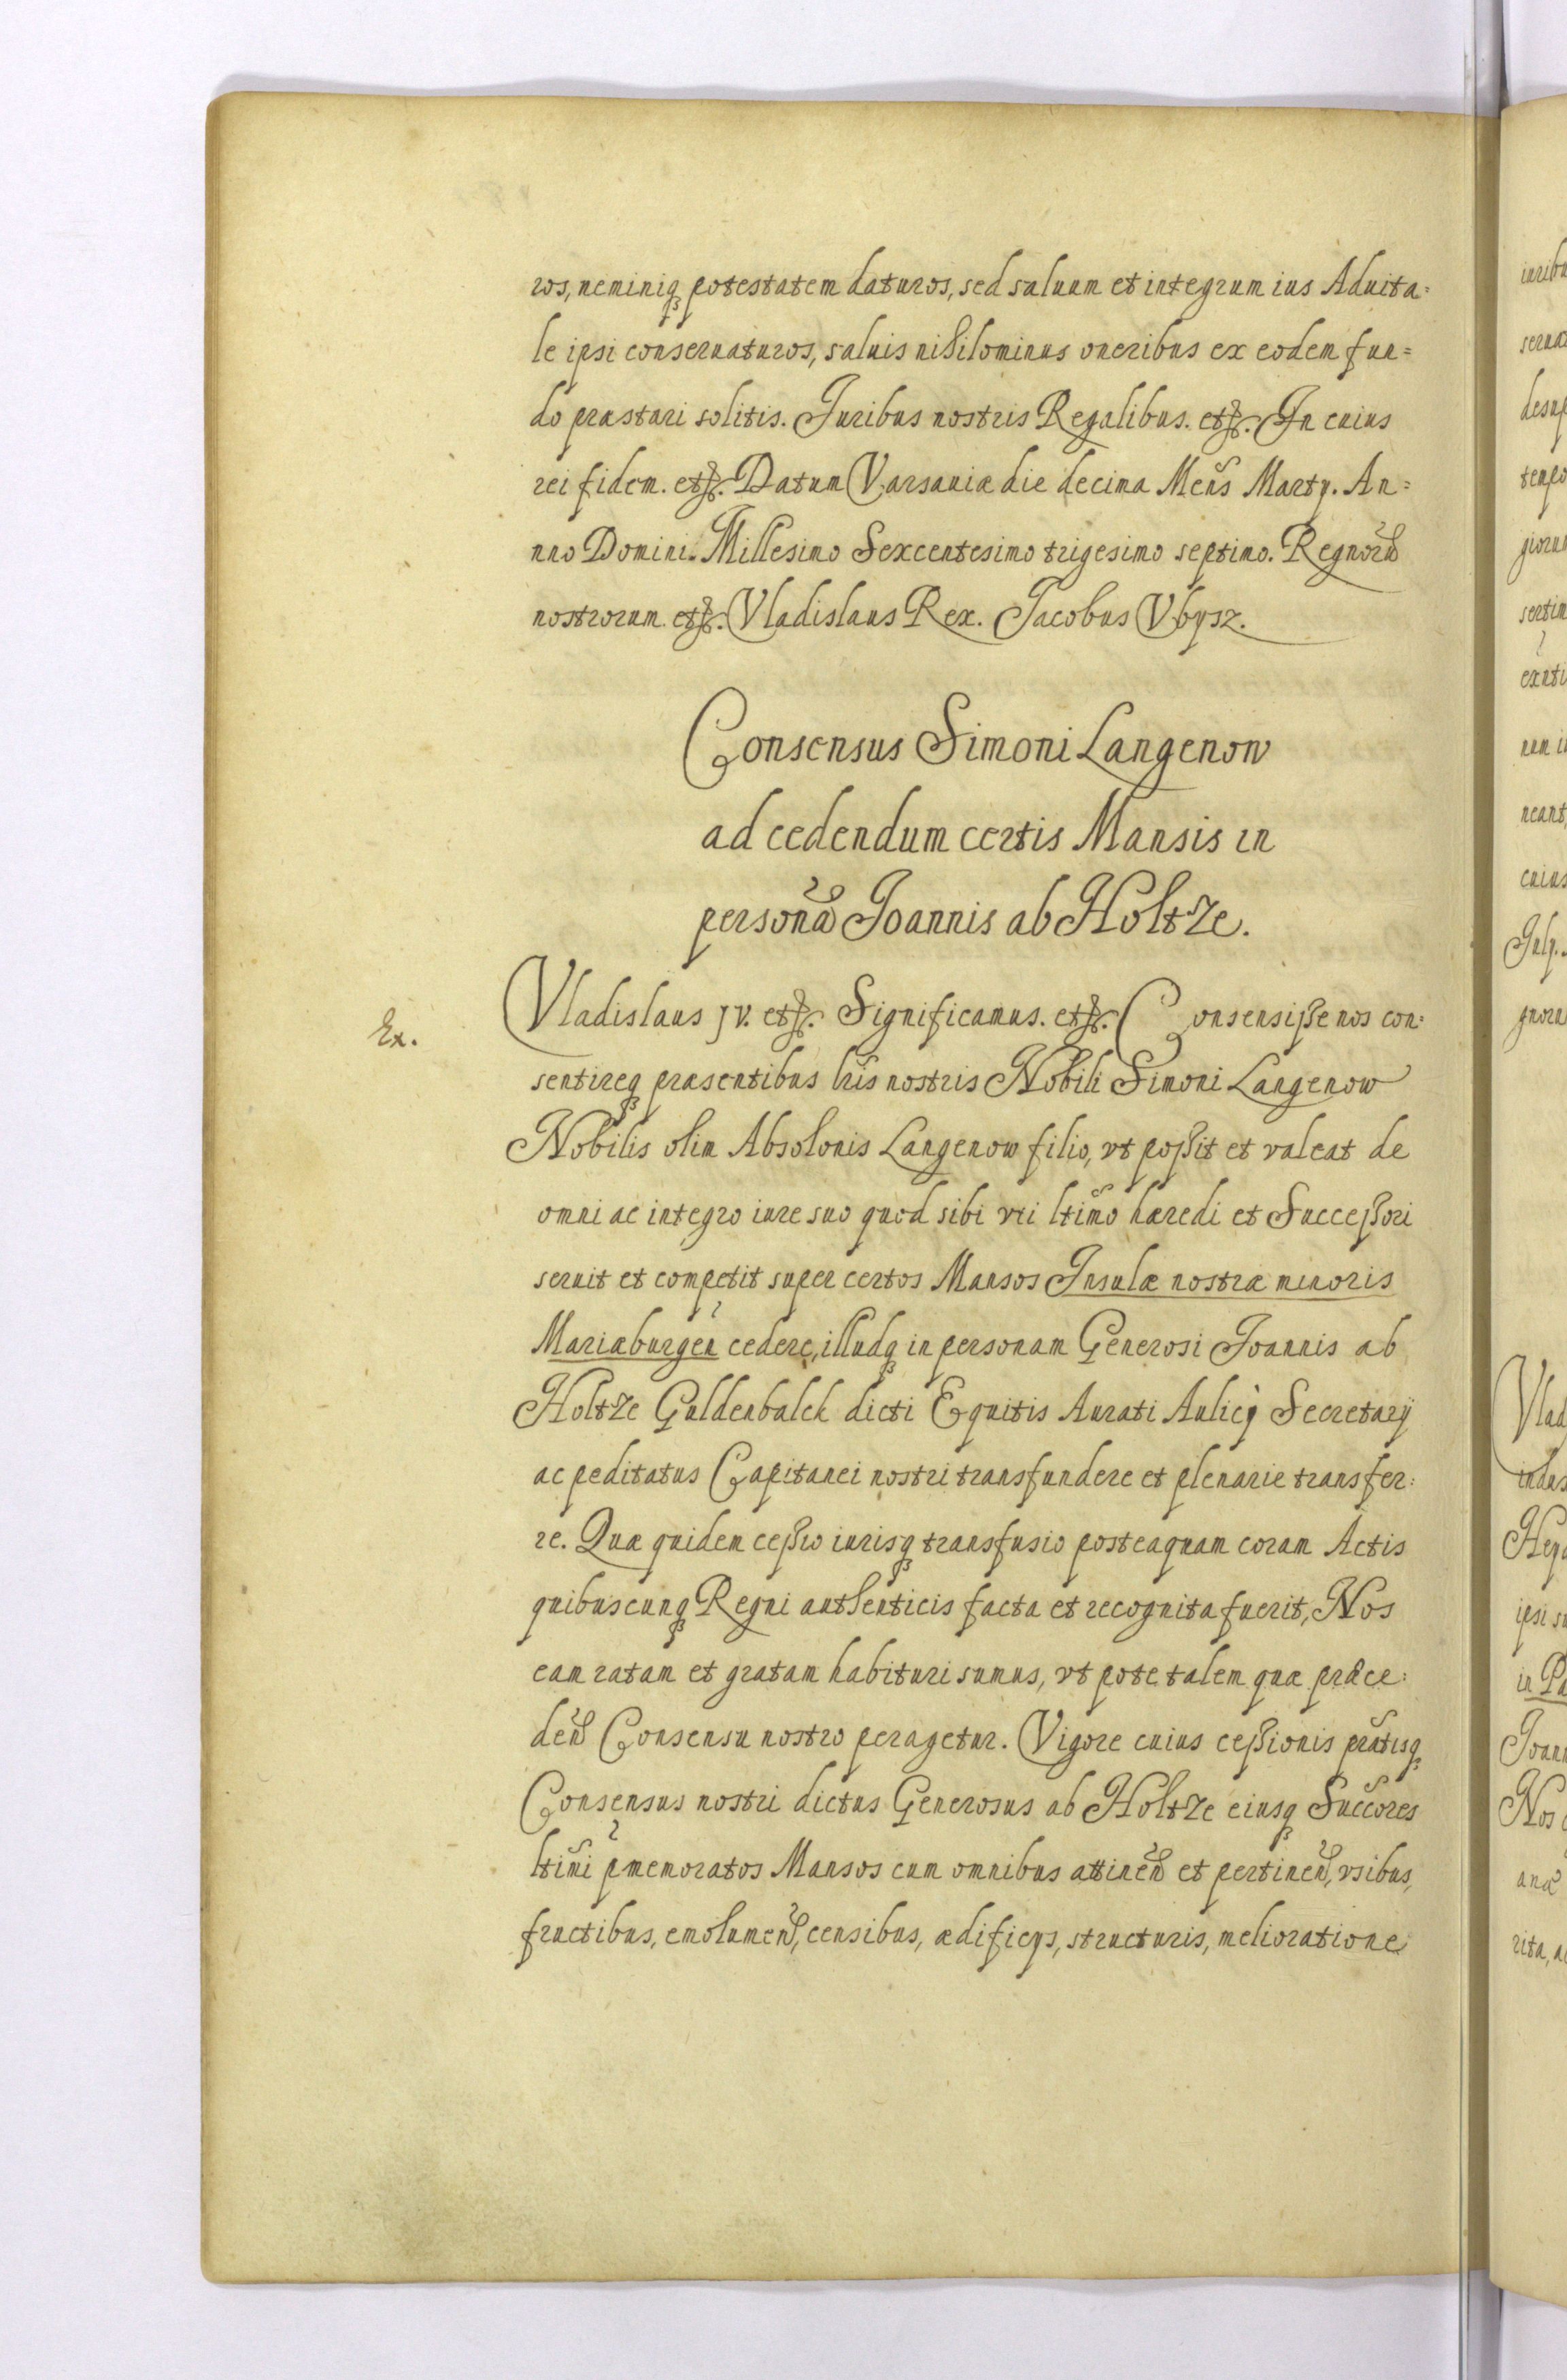 ros, neminiq₃ potestatem daturos, sed saluum et integrum ius Aduita=
le ipsi conseruaturos, saluis nihilominus oneribus ex eodem fun=
do præstari solitis. Juribus nostris Regalibus. etc. In cuius
rei fidem. etc. Datum Varsauiæ die decima Mens̃ Marty. An=
nno Domini. Millesimo Sexcentesimo trigesimo septimo. Regnorũ
nostrorum. etc. Vladislaus Rex. Jacobus Vbysz.
Consensus Simoni Langenow
ad cedendum certis Mansis in
personã Joannis ab Holtze.
Ex.
Vladislaus JV. etc. Significamus. etc. Consensiße nos con:
sentireq₃ præsentibus lr̃is nostris Nobili Simoni Langenow
Nobilis olim Absolonis Langenow filio, vt poßit et valeat de
omni ac integro iure suo quod sibi vti ltimõ hæredi et Succeßori
seruit et competit super certos Mansos Insulæ nostræ minoris
Mariæburgeñ cedere, illudq₃ in personam Generosi Joannis ab
Holtze Guldenbalck dicti Equitis Aurati Aulicj Secretarij
ac peditatus Capitanei nostri transfundere et plenarie transfer:
re. Quæ quidem ceßio iurisq₃ transfusio posteaquam coram Actis
quibuscunq₃ Regni authenticis facta et recognita fuerit, Nos
eam ratam et gratam habituri sumus, vt pote talem quæ præce:
deñ Consensu nostro peragetur. Vigore cuius ceßionis prãtisq₃
Consensus nostri dictus Generosus ab Holtze eiusq₃ Succ̃ores
ltimi p̃memoratos Mansos cum omnibus attineñ et pertineñ, vsibus,
fructibus, emolumeñ, censibus, ædificys, structuris, melioratione